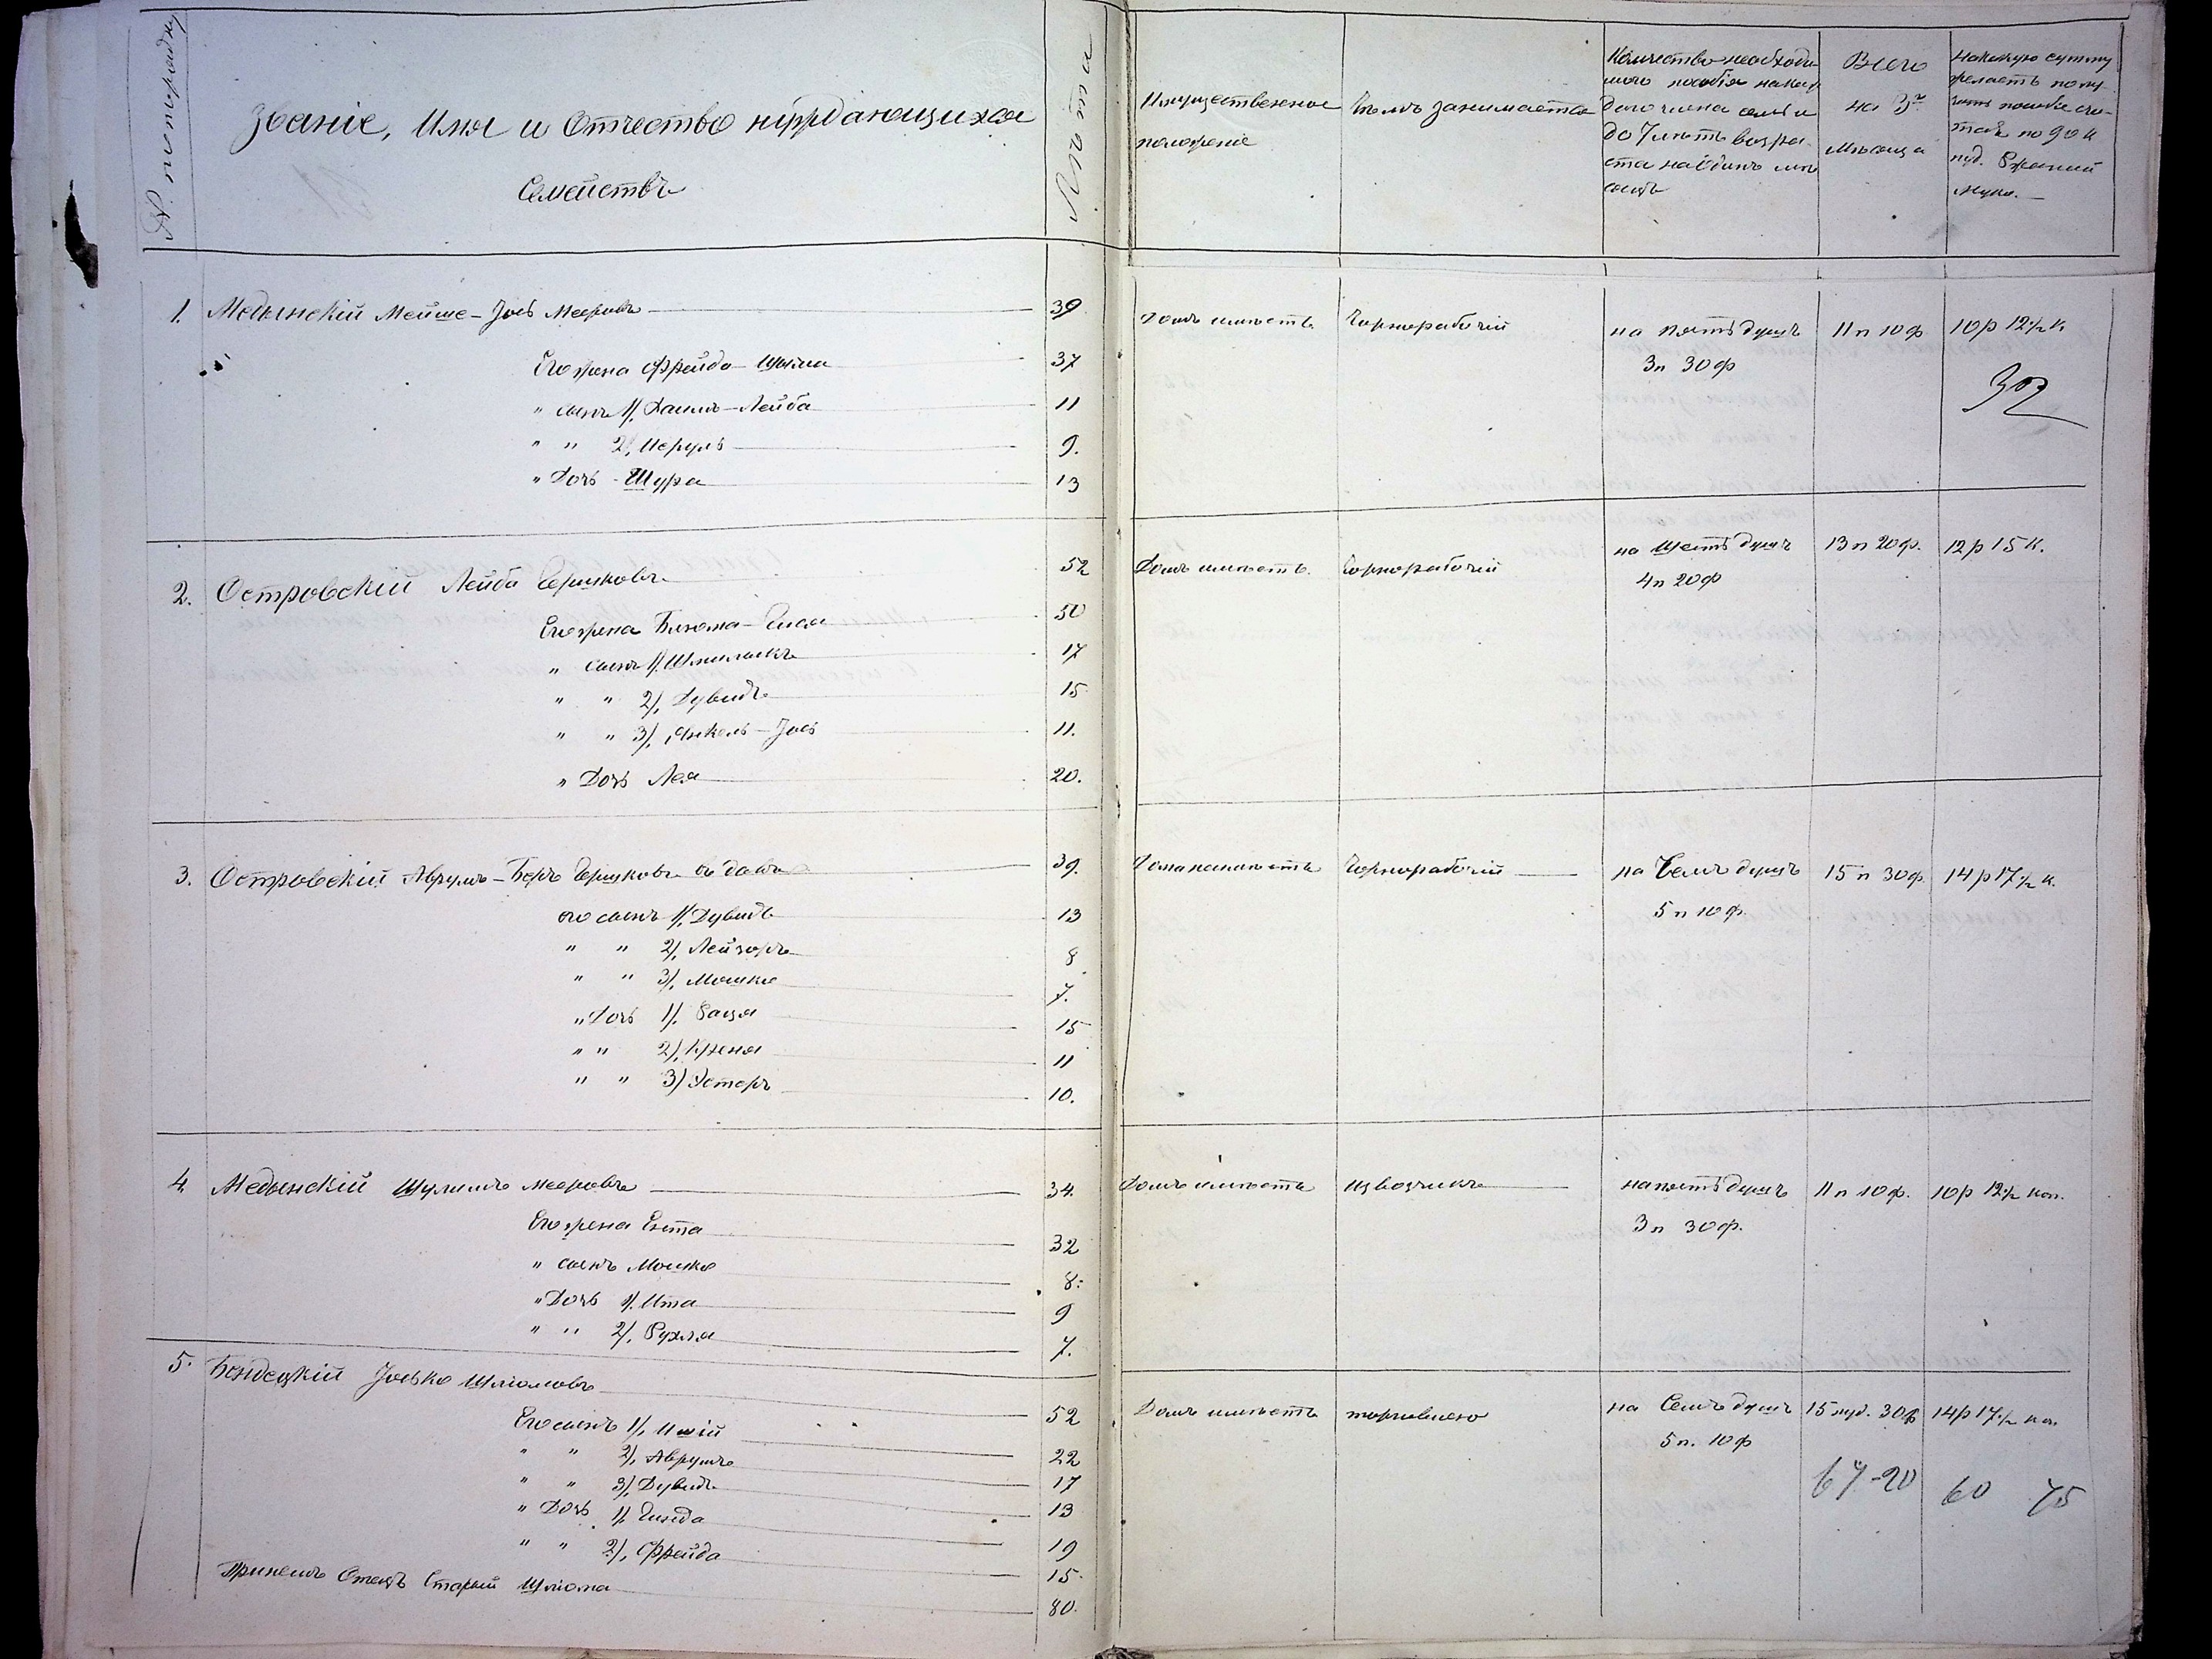 № по порядку
Званіе, Имя и Отчество нуждающихся
Семействъ
Лѣта
Имущественное
положеніе
Чѣмъ занимается
Количество необходи
маго пособія на каж
даго члена семьи
до 7 лѣтъ возра
ста на одинъ мѣ
сяцъ
Всего
на 3
мѣсяца
На какую сумму
желаетъ полу
чить пособіе счи
тая по 90 к
пуд. Ржаной
муки.
1. Медынскій Мейше-Іось Мееровъ 39 Домъ имѣетъ Чернорабочій на пять душъ 11 п 10 ф 10 р 12½ к.
Его жена Фрейда- 37 3 п 30 ф
" сынъ 1/, Хаимъ-Лейба 11
" " 2/, 9.
" Дочь Шура 13
2. Островскій Лейба Гершковъ 52 Домъ имѣетъ. Чернорабочій на Шесть душъ 13 п 20 ф. 12 р 15 к.
Его жена 50 4 п 20 ф
" сынъ 1/, 17
" " 2/, Дувидъ 15
" " 3/, Янкель-Іось 11.
" Дочь Лея 20.
3. Островскій Аврумъ-Беръ Гершковъ вдовъ 39. Дома не имѣетъ Чернорабочій на Семъ душъ 15 п 30 ф. 14 р 17½ к.
его сынъ 1/, Дувидъ 13 5 п 10 ф.
" " 2/, Лейзоръ 8
" " 3/, Мошко 7.
" Дочь 1/. Бася 15
" " 2/, Крейня 11
" " 3/ Эстеръ 10.
4. Медынскій Шулимъ Мееровъ 34. Домъ имѣетъ извозчикъ на пять душъ 11 п 10 ф. 10 р 12½ коп.
Его жена Ента 32 3 п 30 ф.
" сынъ Мошко 8.
" Дочь 1/. Ита 9
" " 2/, Рухля 7.
5. Бендецкій Іосько Шлiомовъ 52 Домъ имѣетъ торговлею на Семъ душъ 15 пуд. 30 ф 14 р 17½ коп.
Его сынъ 1/, 22 5 п. 10 ф
" " 2/, Аврумъ 17
" " 3/, Дувидъ 13
" Дочь 1/. 19
" " 2/, Фрейда 15
Отецъ Старый Шлiома 80.
67-20 60 75